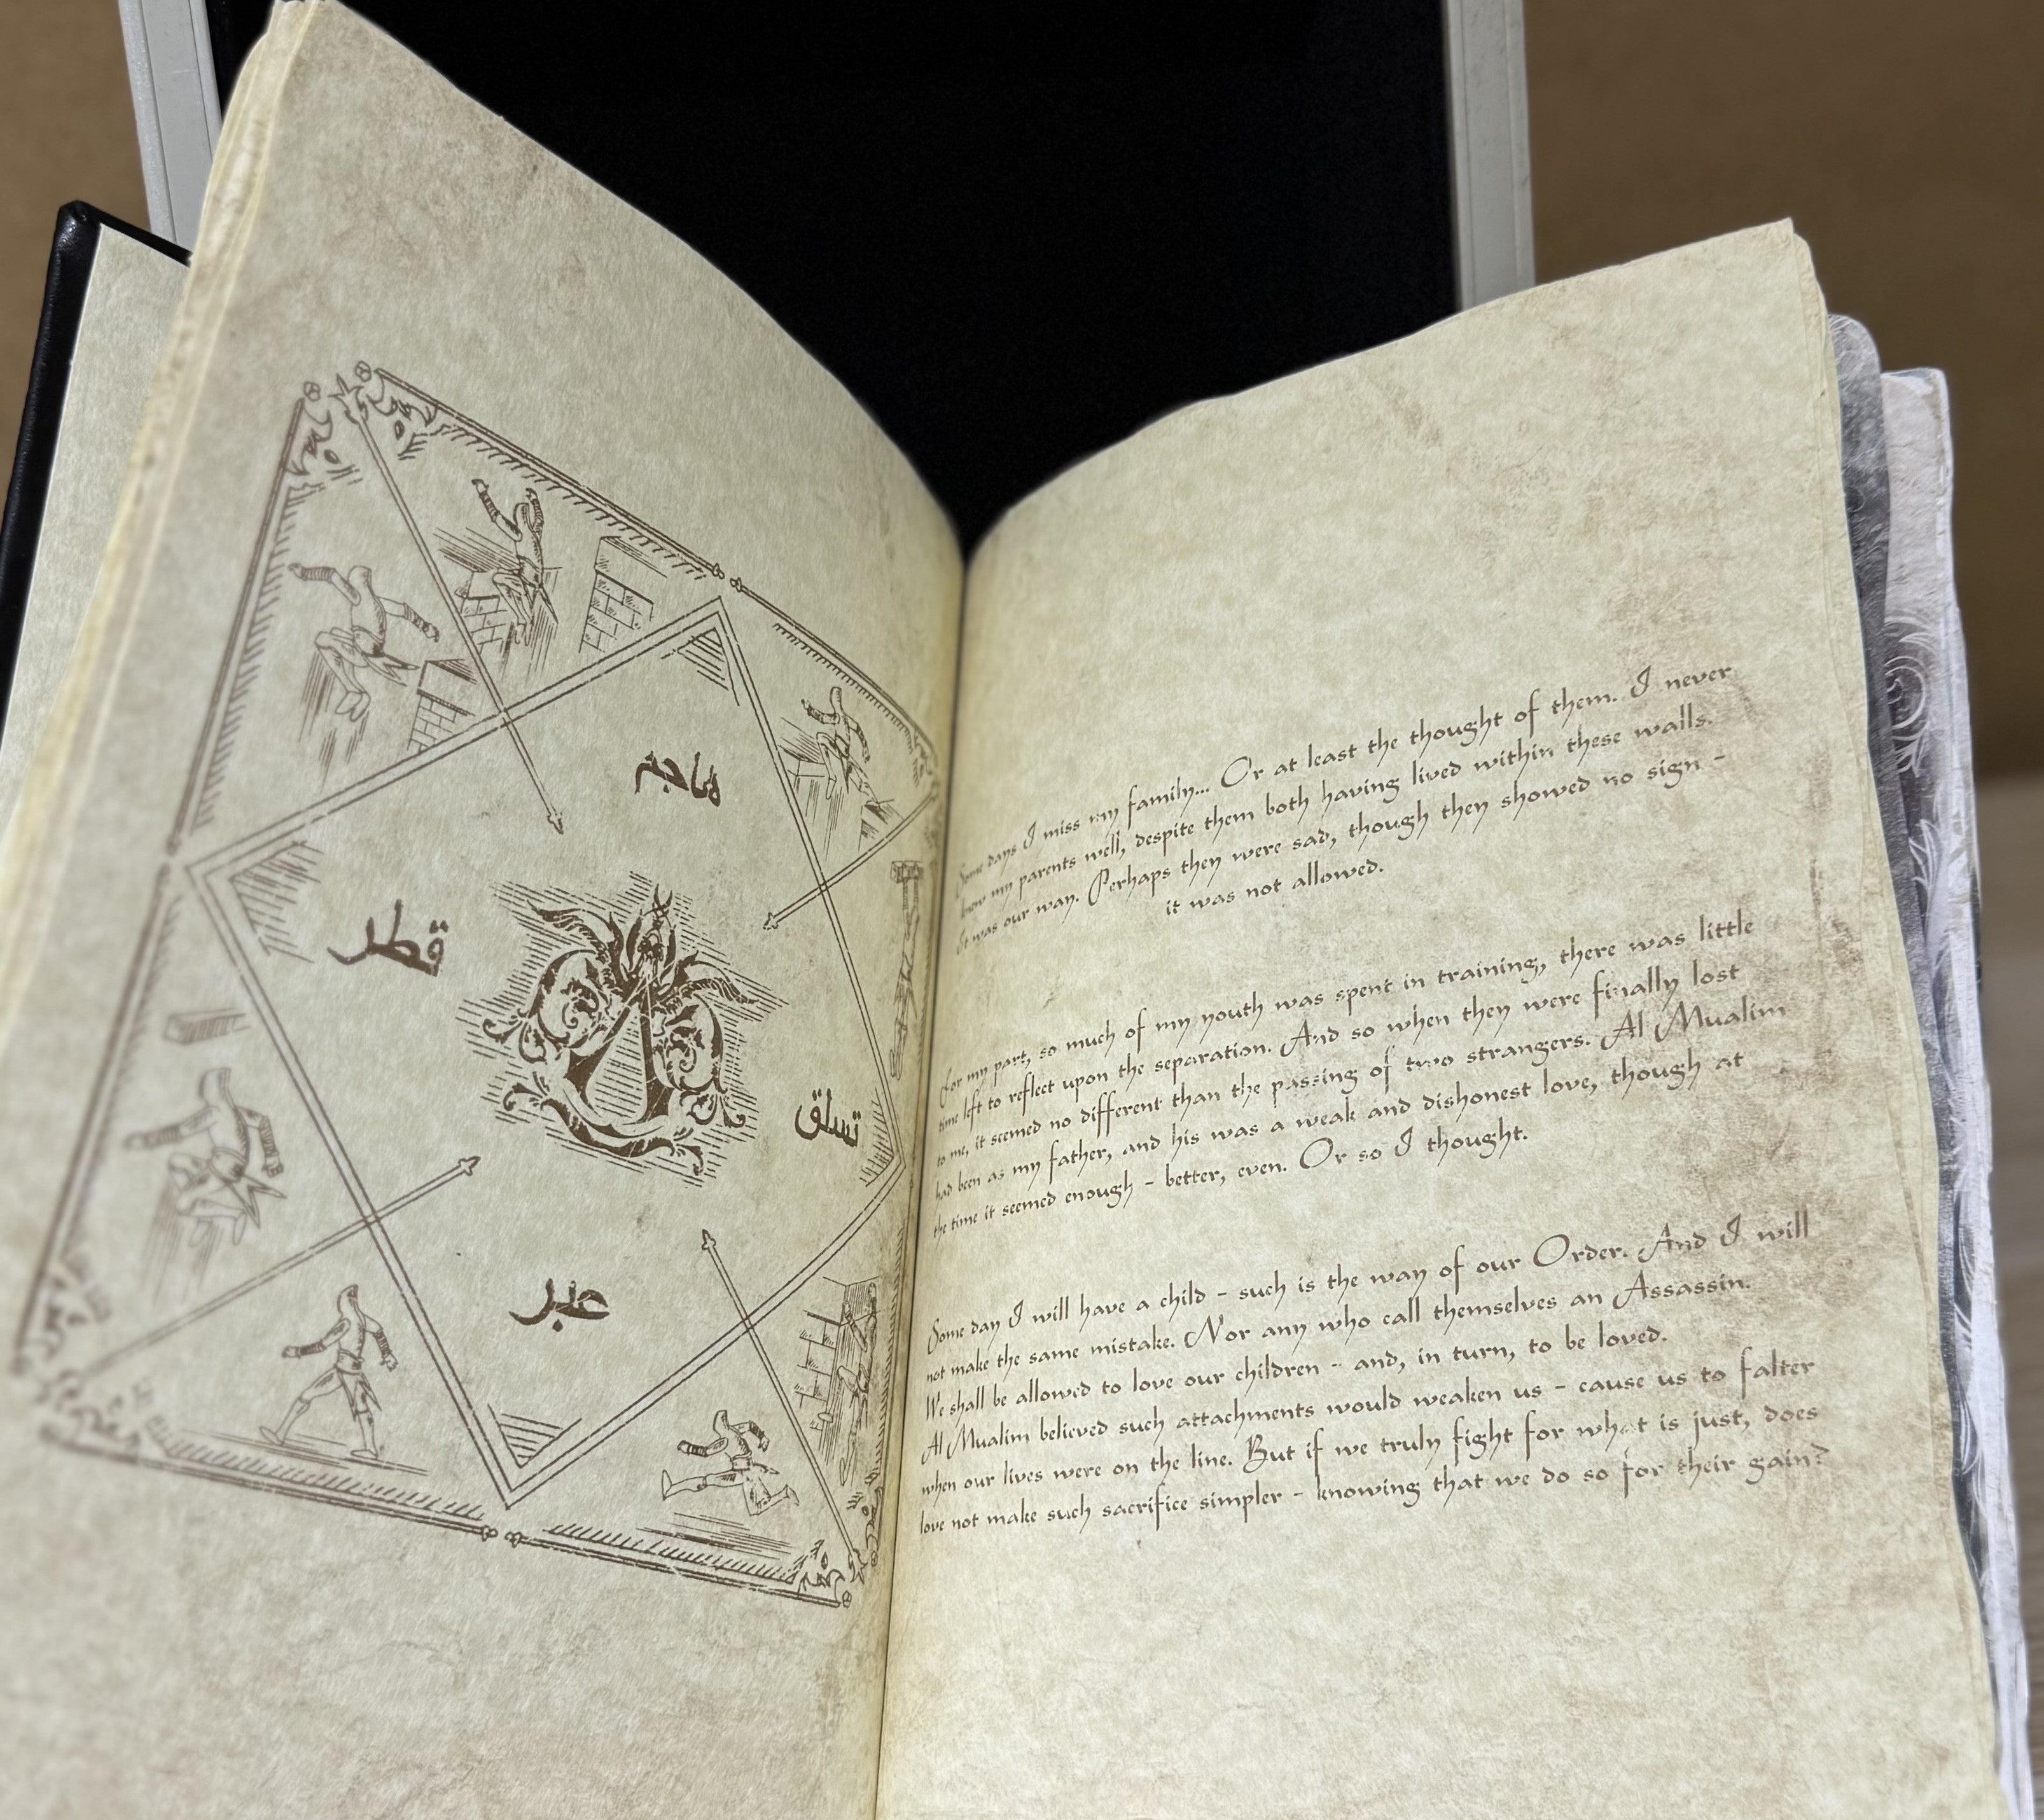 هاجم
قطر
تسلق
عبر
Some days I miss my family... Or at least the thought of them. I never
know my parents well, despite them both having lived within these walls.
It was our way. Perhaps they were sad, though they showed no sign -
it was not allowed.
For my part, so much of my youth was spent in training, there was little
time left to reflect upon the separation. And so when they were finally lost
to me, it seemed no different than the passing of two strangers. Al Mualim
had been as my father, and his was a weak and dishonest love, though at
the time it seemed enough - better, even. Or so I thought.
Some day I will have a child - such is the way of our Order. And I will
not make the same mistake. Nor any who call themselves an Assassin.
We shall be allowed to love our children - and, in turn, to be loved.
Al Mualim believed such attachments would weaken us - cause us to falter
when our lives were on the line. But if we truly fight for what is just, does
love not make such sacrifice simpler - knowing that we do so for their gain?